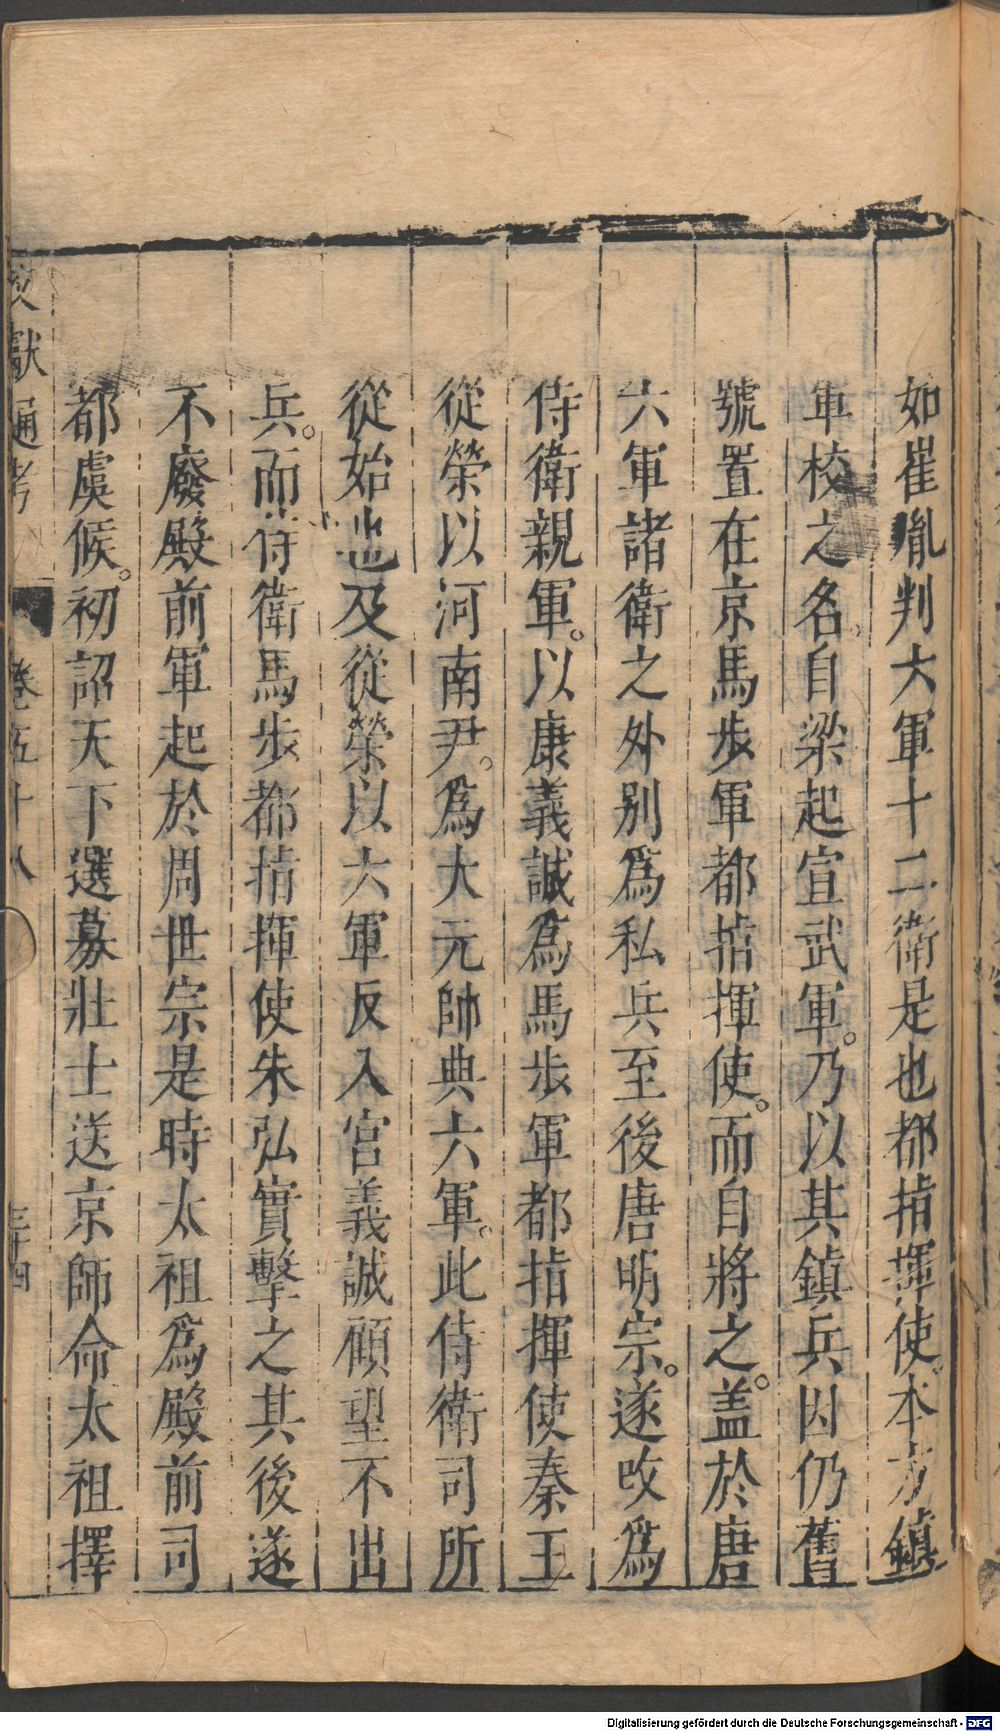 如崔胤判大軍十二衛是也都指揮使本方鎮
軍校之名自梁起宣武軍。乃以其鎮兵因仍舊
號置在京馬步軍都指揮使。而自將之。盖於唐
六軍諸衛之外別爲私兵至後唐明宗。遂改爲
侍衛親軍。以康義誠爲馬步軍都指揮使秦王
從榮以河南尹。爲大元帥典六軍。此侍衛司所
從始也及從榮以六軍反入宮義誠顧望不出
兵。而侍衛馬步都指揮使朱弘實擊之其後遂
不廢殿前軍起於周世宗是時太祖爲殿前司
都虞候。初詔天下選募壯士送京師命太祖擇
文獻通考 卷五十八 三十四
Digitalisierung gefördert durch die Deutsche Forschungsgemeinschaft - DFG